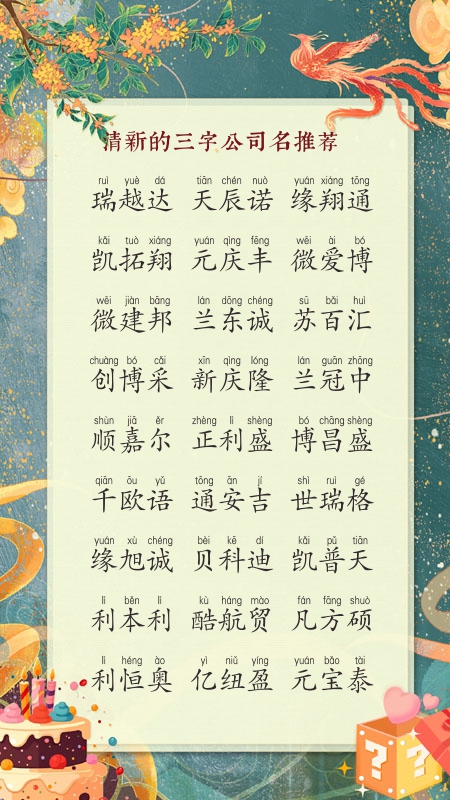 清新的三字公司名推荐
ruì yuè dá tiān chén nuò yuán xiáng tōng
瑞越达 天辰诺 缘翔通
kǎi tuò xiáng yuán qìng fēng wēi ài bó
凯拓翔 元庆丰 微爱博
wēi jiàn bāng lán dōng chéng sū bǎi huì
微建邦 兰东诚 苏百汇
chuàng bó cǎi xīn qìng lóng lán guān zhōng
创博采 新庆隆 兰冠中
shùn jiā ěr zhèng lì shèng bó chāng shèng
顺嘉尔 正利盛 博昌盛
qiān ōu yǔ tōng ān jí shì ruì gé
千欧语 通安吉 世瑞格
yuán xù chéng bèi kē dí kǎi pǔ tiān
缘旭诚 贝科迪 凯普天
lì běn lì kù háng mào fán fāng shuò
利本利 酷航贸 凡方硕
lì héng ào yì niǔ yíng yuán bǎo tài
利恒奥 亿纽盈 元宝泰
? ?